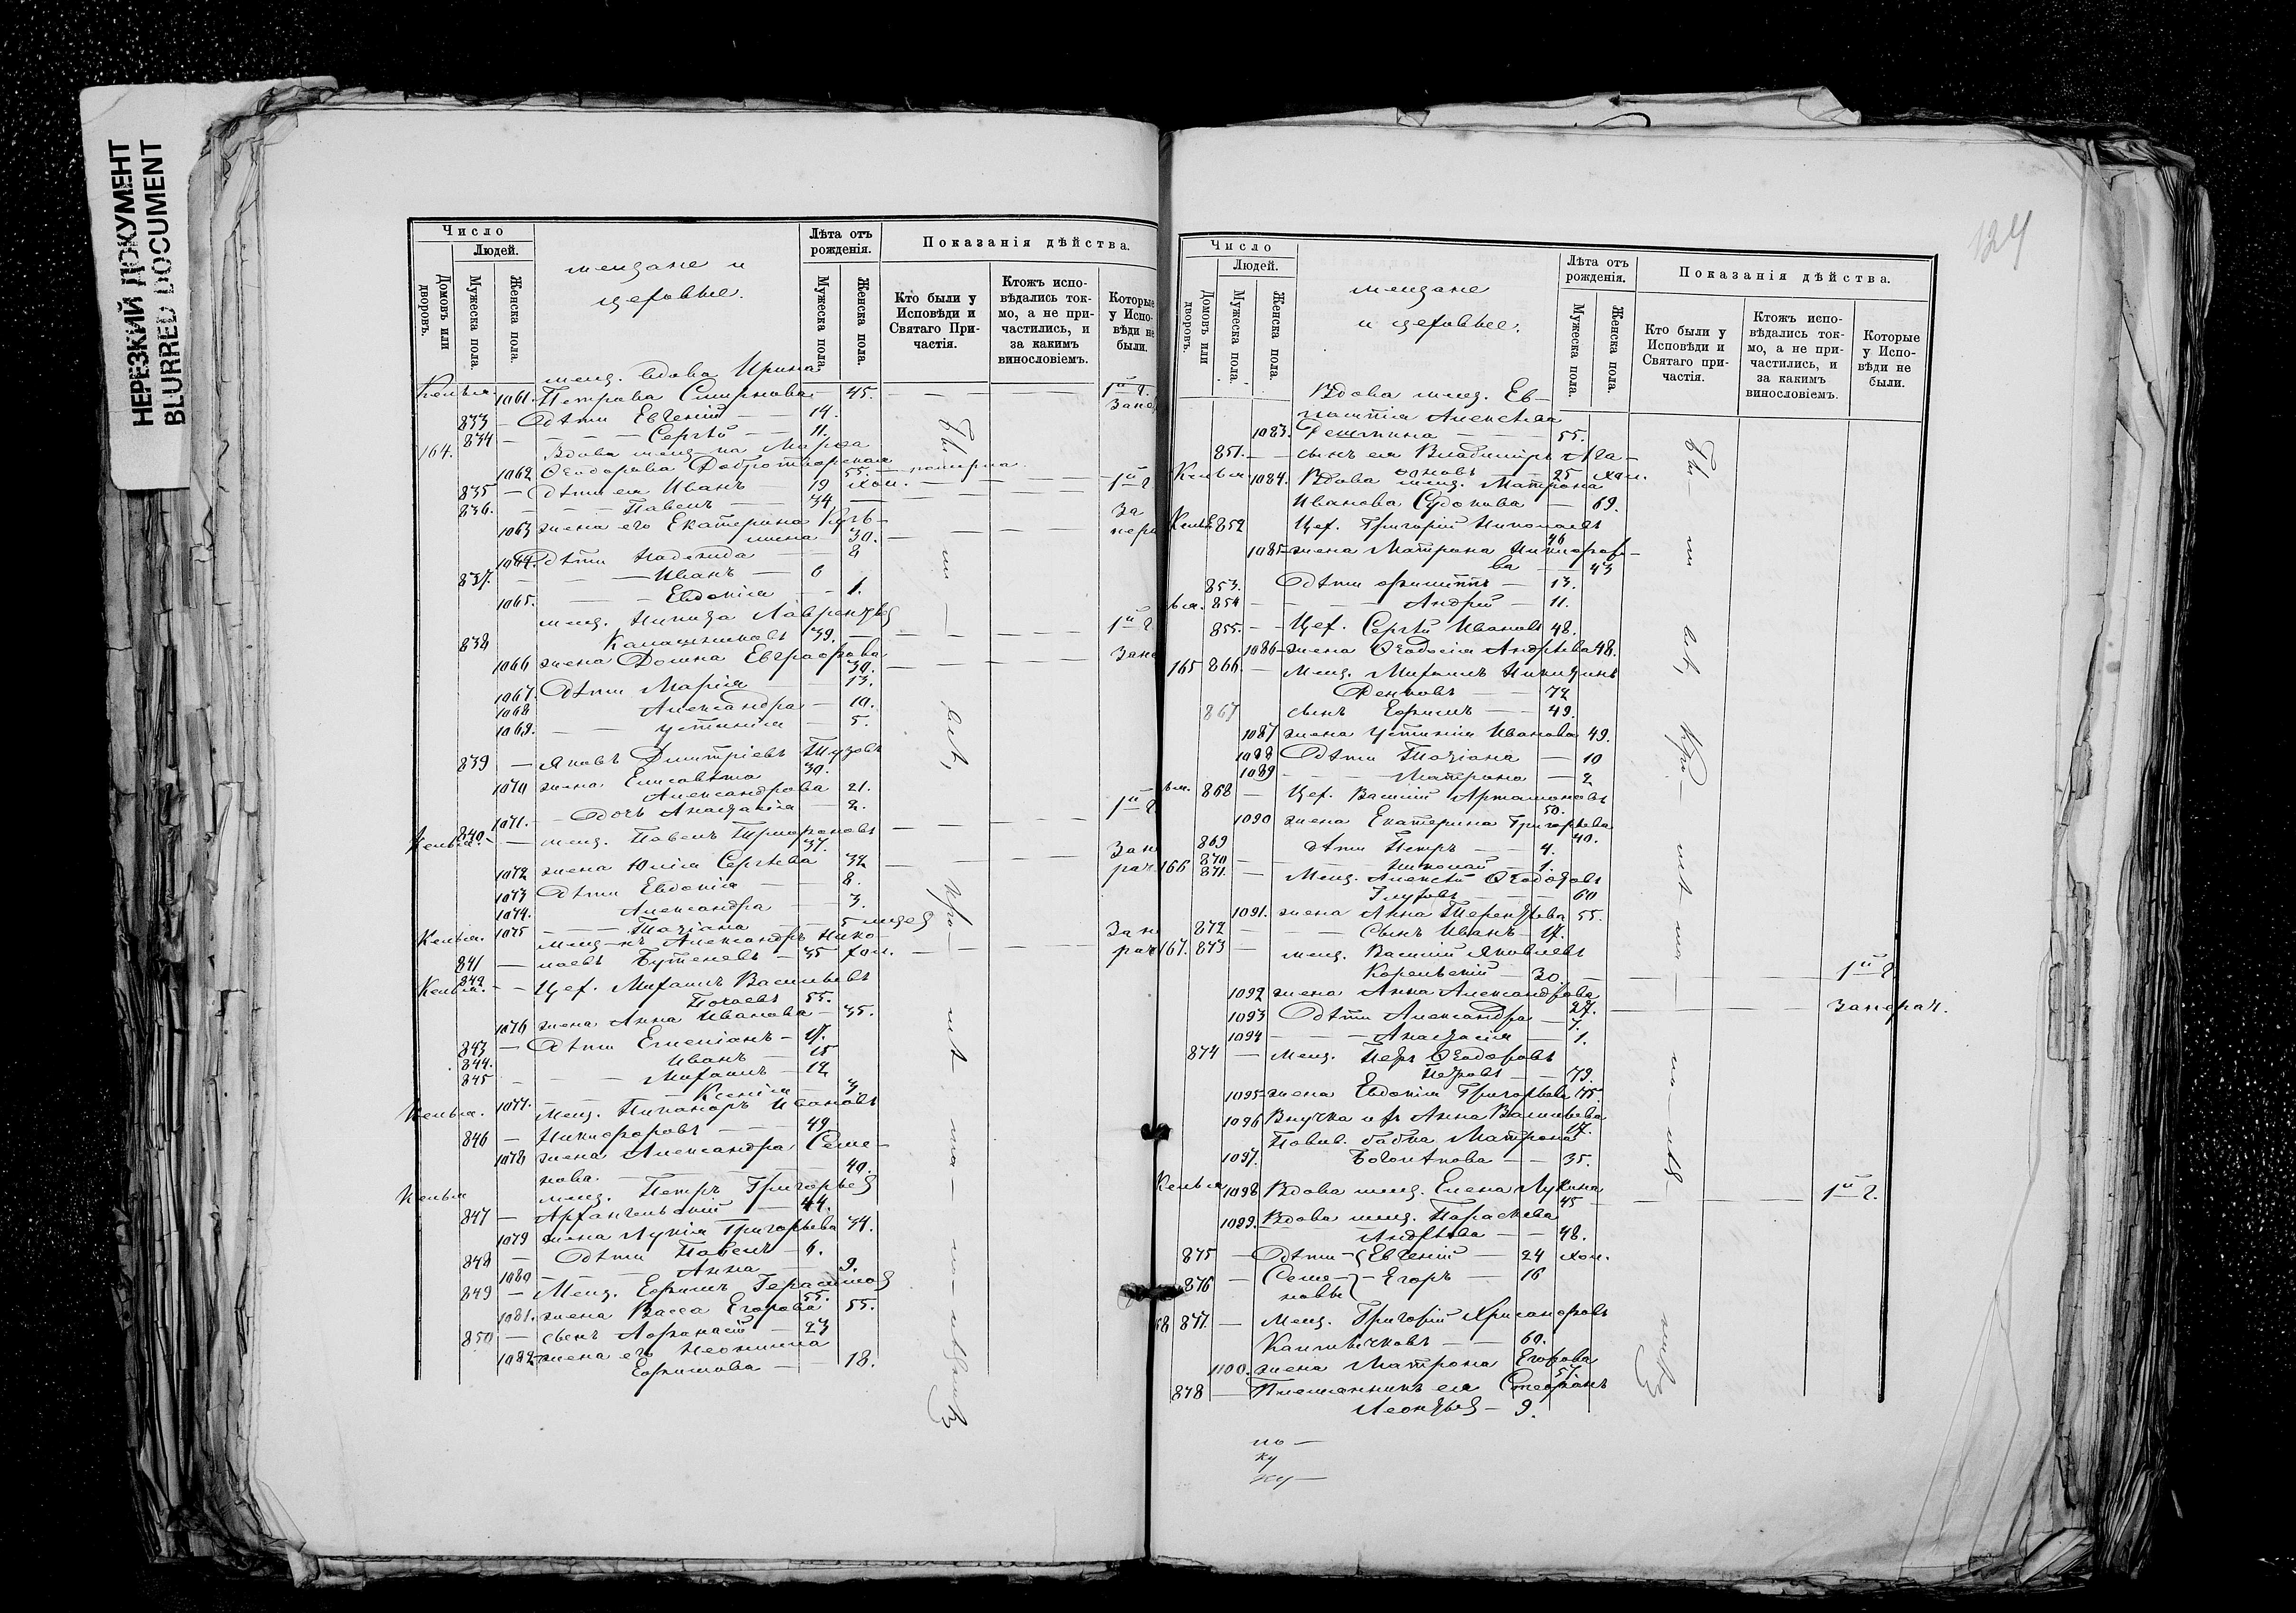 НЕРЕЗКИЙ ДОКУМЕНТ
BLURRED DOCUMENT
Число
Людей.
Домовъ или дворовъ.
Мужеска пола.
Женска пола.
мещане и
цеховые.
Лѣта отъ рожденія.
Мужеска пола.
Женска пола.
Показанія дѣйства.
Кто были у Исповѣди и Святаго Причастія.
Ктожъ исповѣдались токмо, а не причастились, и за какимъ винословіемъ.
Которые у Исповѣди не были.
мещ. вдова Ирина
Келья 1061. Петрова Смирнова 45. — — — — 1й г.
833 — Дѣти Евгеній — 14. Запер
834 — — — Сергѣй — 11.
164. Вдова мещ-ка Марѳа
1062 Ѳеодорова Добротворская 55. —
835 — Дѣти ея Иванъ — 19 хол. — 1й г
836. — — Павелъ — 34 — За
1063 жена его Екатерина Кузь- пера
мина 30.
1064. Дѣти Надежда — 8
837. — — Иванъ — 6
1065. — — Евдокія — 1.
мещ. Никита Лаврентьев
838 Калашниковъ 39. — — — 1й г
1066 жена Домна Евграфова 30. — Запе
1067. Дѣти Марія — 13.
1068 Александра — 10.
1069. — — Устинія — 5.
839 — Яковъ Димитріевъ Тузовъ 30.
1070 жена Елисавета
Александрова 21.
1071. — Дочь Анастасія — 2. 1й г
Келья. 840. — мещ. Павелъ Трифоновъ 37.
1072 жена Юлія Сергѣева 32 — — — Зап
1073 Дѣти Евдокія — 8. рач
1074. Александра — 3.
1075 — — Татіана — 5 мѣся
Келья. мещ-нъ Александръ Нико- Зап
841 — лаевъ Бутеневъ — 35 хол. — рач
Келья. 842 — — Цех. Михаилъ Васильевъ
55.
1076 жена Анна Иванова — 35.
843 — Дѣти Емеліанъ — 17.
844. Иванъ — 15
845 — — Михаилъ — 12
1077. Ксенія — 3
Келья. мещ. Никаноръ Ивановъ
846 — Никифоровъ — 49
1078 жена Александра Семе-
нова. — 40.
Келья мещ. Петръ Григорьев
847 — Архангельскій — 44.
1079 жена Лукія Григорьева 34.
848 — Дѣти Павелъ — 6.
1080 — — Анна — 9.
849 — Мещ. Ефимъ Герасимов 55.
1081. жена Васса Егорова 55.
850 — сынъ Аѳанасій — 23
1082 жена его Неонилла
Ефимова — — 18.
124
Число
Людей.
Домовъ или дворовъ.
Мужеска пола.
Женска пола.
мещане
и цеховые.
Лѣта отъ рожденія.
Мужеска пола.
Женска пола.
Показанія дѣйства.
Кто были у Исповѣди и Святаго причастія.
Ктожъ исповѣдались токмо, а не причастились, и за какимъ винословіемъ.
Которые у Исповѣди не были.
Вдова мещ. Ев-
лампія Алексѣева
1083. — — 55.
851. — — сынъ ея Владимиръ
25 хол.
Келья 1084. Вдова мещ. Матрона
Иванова Судокова — 69.
Келья 852 Цех. Григорій Николаевъ 46
1085 жена Матрона Никифоро-
ва — 43
853. Дѣти Филиппъ — 13.
ья. 854 — — — Андрей — 11.
855. — — Цех. Сергѣй Ивановъ 48.
1086 жена Ѳеодосія Андрѣева 48.
165 866 — Мещ. Михаилъ Никитинъ
— — 72
867 сынъ Ефимъ — 49.
1087 жена Устинія Иванова 49.
1088 Дѣти Татіана — 10
1089 — — — Матрона — 2
ья. 868 — Цех. Василій Артамоновъ 50.
1090 жена Екатерина Григорьева 40.
869 Дѣти Петръ — 4.
870 — — — Николай — 1.
166 871. — Мещ. Алексѣй Ѳеодоровъ
Глуховъ — — 60
1091. жена Анна Терентьева 55.
872 — — — Сынъ Иванъ — 17.
167. 873 — мещ. Василій Яковлевъ
Корельскій — 30 — — — 1й г
1092 жена Анна Александрова 27. — — — Запрач.
1093 Дѣти Александра — 7.
1094 — — — Анастасія — 1.
874 — Мещ. Петръ Ѳеодоровъ
Петровъ — — 79.
1095 жена Евдокія Григорьева 75.
1096 Внучка ихъ Анна Васильева 17.
Повив. бабка Матрона
1097. Боголѣпова — — 35.
Келья 1098 Вдова мещ. Елена Лукина 45 — — — 1й г.
1099. Вдова мещ. Параскева
Андрѣева — — 48.
875 — Дѣти — Евгеній — 24 хол.
876 — Семе- — Егоръ — 16
новы
68 877. — Мещ. Григорій Хрисанфовъ
60.
1100. жена Матрона Егорова 57.
878 — Племянникъ ея Стефанъ
Леонтьев — 9.